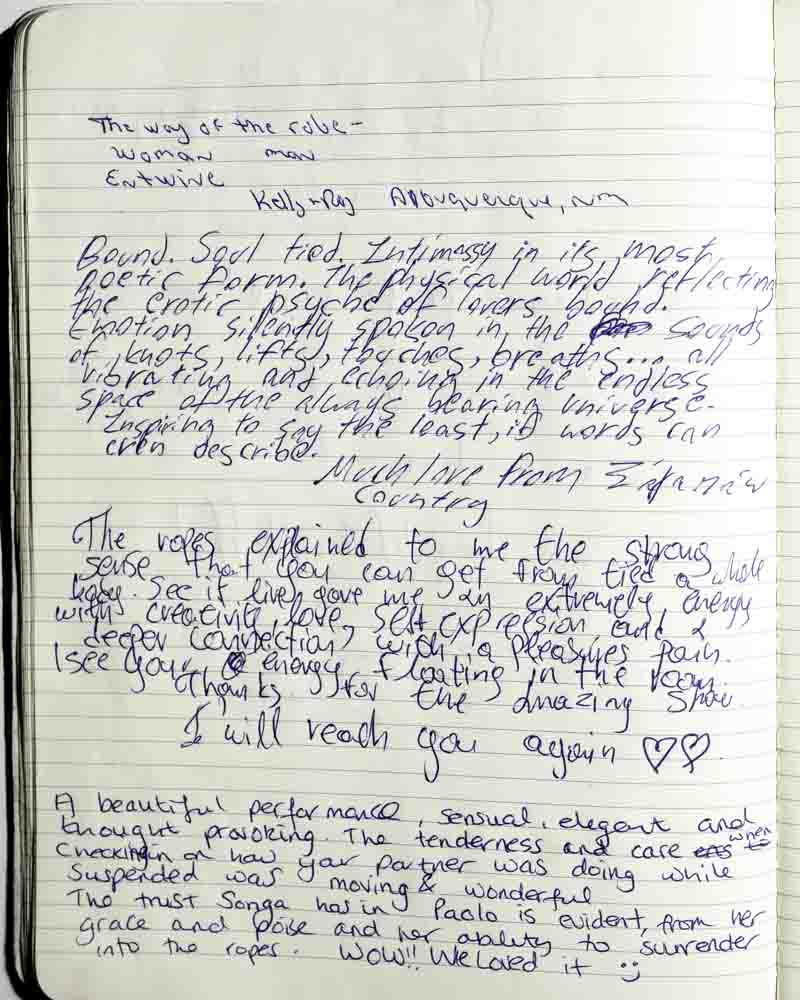 The way of the robe -
woman man
Entwine
Kelly + Ray Albuquerque, nm
Bound. Soul tied. Intimassy in its most
poetic form. The physical world reflecting
the erotic psyche of lovers bound.
Emotion silently spoken in the sounds
of knots, lifts, touches, breaths... all
vibrating and echoing in the endless
space of the always bearing universe.
Inspiring to say the least, if words can
even describe.
Much love from
country
The ropes explained to me the strong
sense that you can get from tied a whole
body. See it live gave me an extremely energy
with creativity, love, self expression and a
deeper connection with a pleasures pain.
I see your energy floating in the room.
Thanks for the amazing show.
I will reach you again ♡♡.
A beautiful performance, sensual, elegant and
thought provoking. The tenderness and care when
checking in on how your partner was doing while
suspended was moving & wonderful
The trust Songa has in Paolo is evident, from her
grace and poise and her ability to surrender
into the ropes. WOW!! We loved it :)